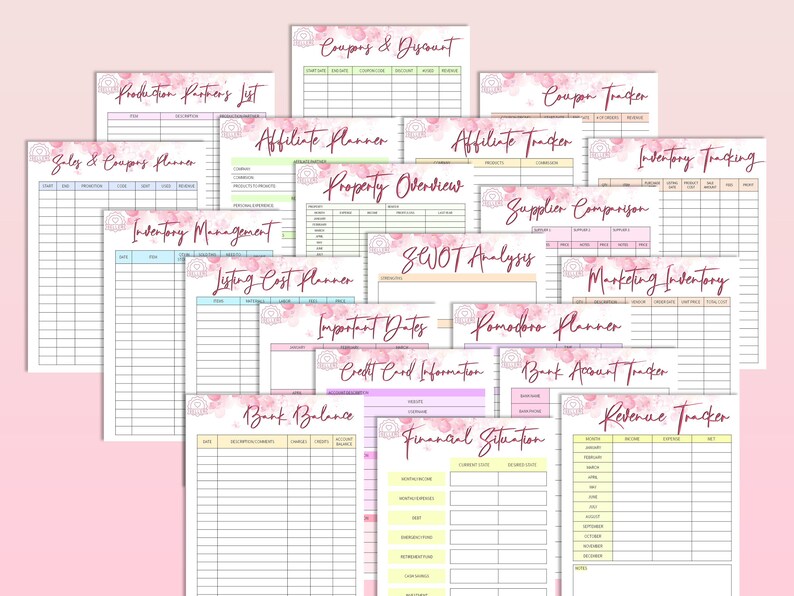 Coupons & Discount
START DATE END DATE COUPON CODE DISCOUNT # USED REVENUE
Production Partner's List
ITEM DESCRIPTION PRODUCTION PARTNER
Coupon Tracker
# OF ORDERS REVENUE
Affiliate Planner
AFFILIATE PARTNER
COMPANY:
COMMISION:
PRODUCTS TO PROMOTE:
PERSONAL EXPERIENCE
Affiliate Tracker
COMPANY PRODUCTS COMMISSION
Sales & Coupons Planner
START END PROMOTION CODE SENT USED REVENUE
Inventory Tracking
QTY ITEM PURCHASE LISTING DATE PRODUCT COST SALE AMOUNT FEES PROFIT
Property Overview
PROPERTY
MONTH EXPENSE INCOME PROFIT/LOSS LAST YEAR
JANUARY
FEBRUARY
MARCH
APRIL
MAY
JUNE
JULY
Supplier Comparison
SUPPLIER 1 SUPPLIER 2 SUPPLIER 3
PRICE NOTES PRICE NOTES PRICE
Inventory Management
DATE ITEM
SWOT Analysis
STRENGTHS
Listing Cost Planner
ITEMS MATERIALS LABOR FEES PRICE
Marketing Inventory
QTY DESCRIPTION VENDOR ORDER DATE UNIT PRICE TOTAL COST
Important Dates
JANUARY FEBRUARY MARCH
APRIL
Pomodoro Planner
Credit Card Information
ACCOUNT DESCRIPTION
WEBSITE
USERNAME
Bank Account Tracker
BANK NAME
BANK PHONE
Bank Balance
DATE DESCRIPTION/COMMENTS CHARGES CREDITS ACCOUNT BALANCE
Financial Situation
CURRENT STATE DESIRED STATE
MONTHLY INCOME
MONTHLY EXPENSES
DEBT
EMERGENCY FUND
RETIREMENT FUND
CASH SAVINGS
INVESTMENT
Revenue Tracker
MONTH INCOME EXPENSE NET
JANUARY
FEBRUARY
MARCH
APRIL
MAY
JUNE
JULY
AUGUST
SEPTEMBER
OCTOBER
NOVEMBER
DECEMBER
NOTES